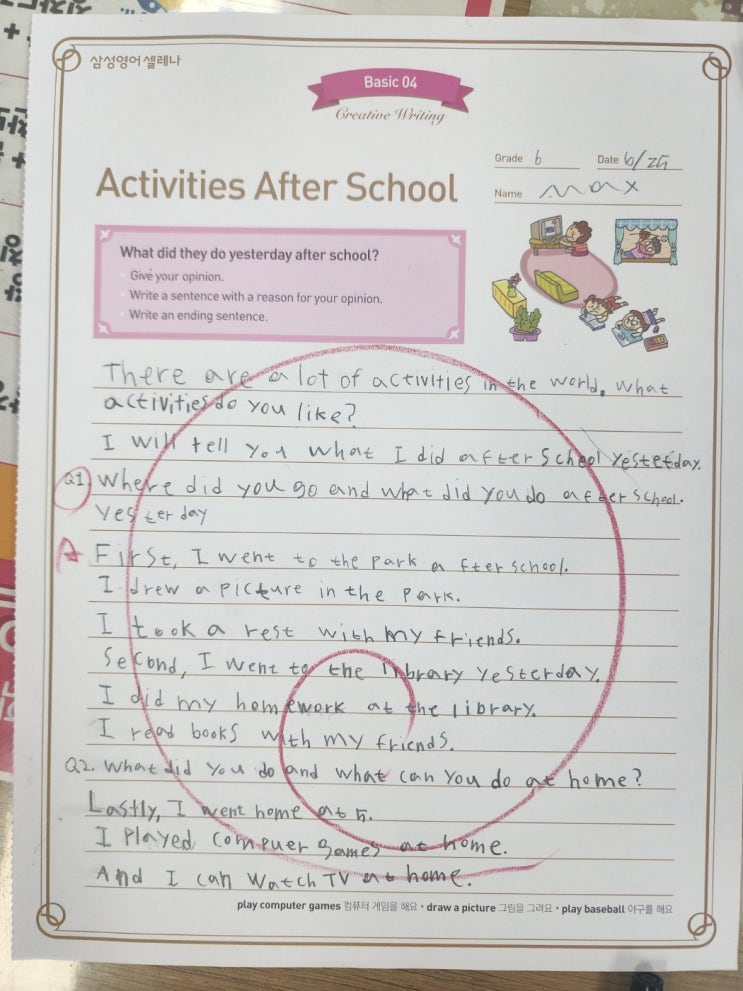 삼성영어 셀레나
Basic 04
Creative Writing
Grade 6 Date 6/25
Name Max
Activities After School
What did they do yesterday after school?
· Give your opinion.
· Write a sentence with a reason for your opinion.
· Write an ending sentence.
There are a lot of activities in the world, what
activities do you like?
I will tell you what I did after school yesterday.
Q1. Where did you go and what did you do after school.
yesterday
A First, I went to the park after school.
I drew a picture in the park.
I took a rest with my friends.
Second, I went to the library yesterday.
I did my homework at the library.
I read books with my friends.
Q2. What did you do and what can you do at home?
Lastly, I went home at 5.
I played compuer games at home.
And I can watch TV at home.
play computer games 컴퓨터 게임을 해요 · draw a picture 그림을 그려요 · play baseball 야구를 해요